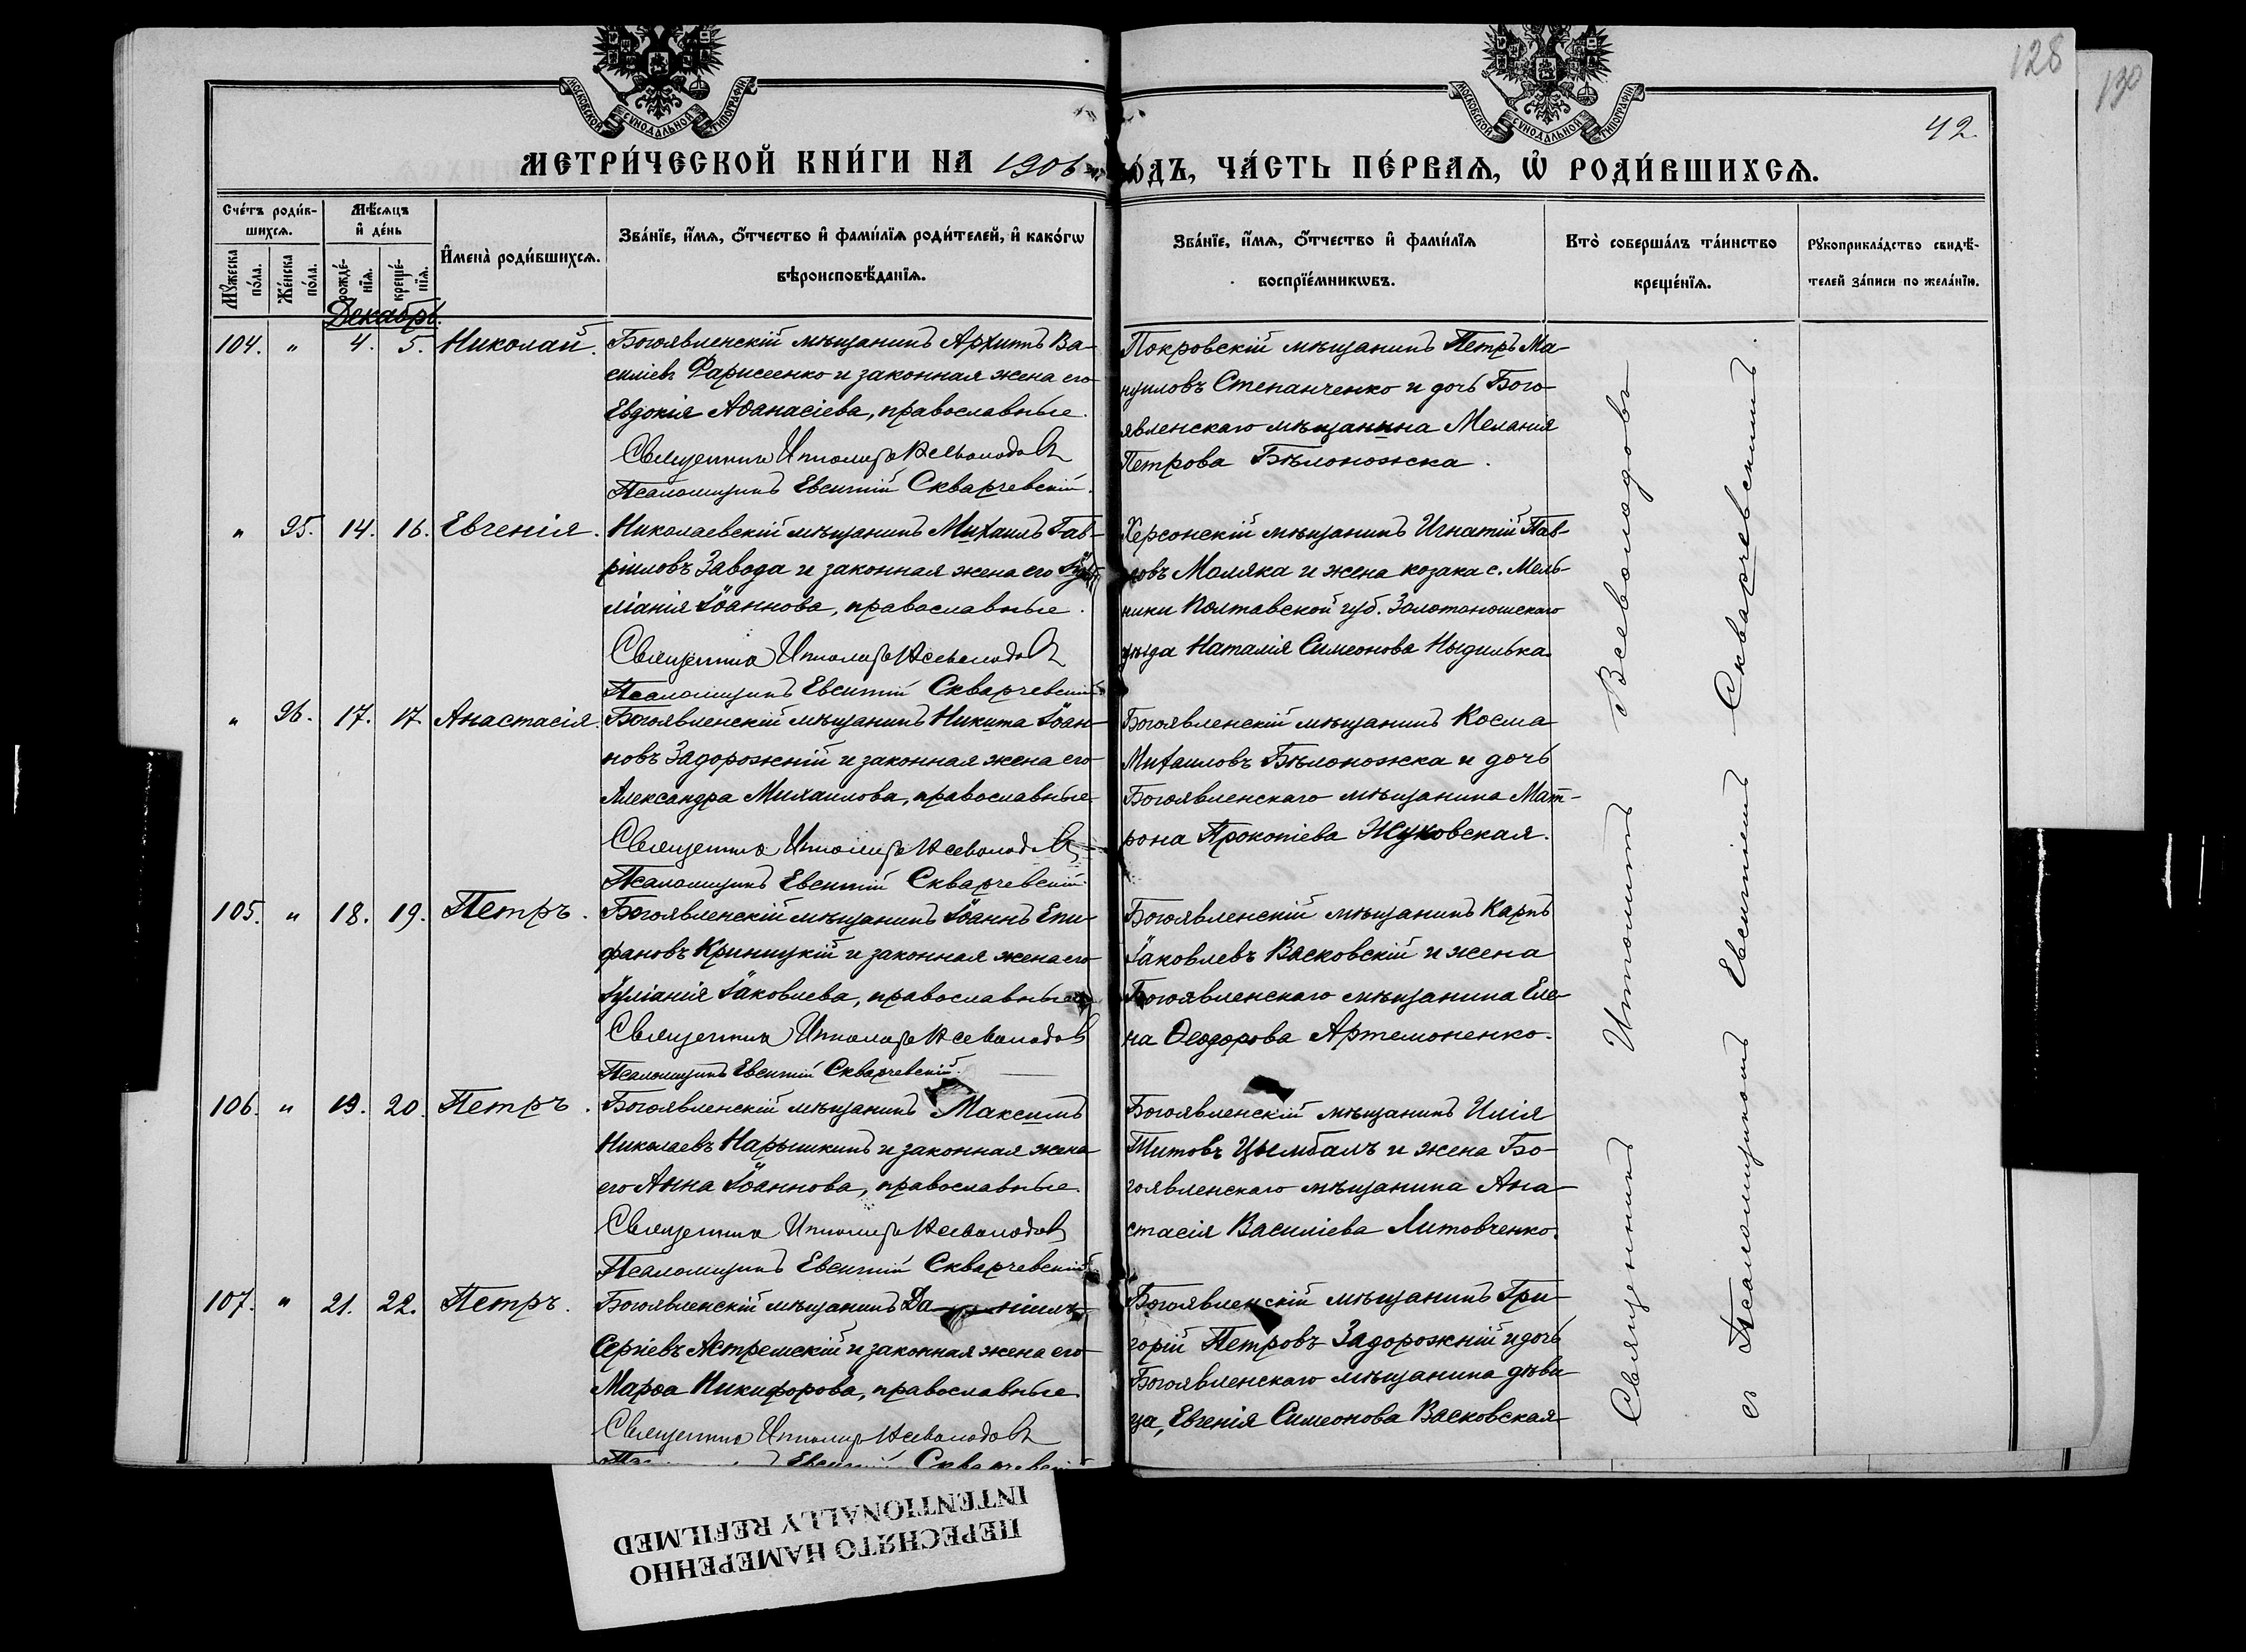 128
130
42.
МОСКОВСКОЙ СѴНОДАЛЬНОЙ ТИПОГРАФІИ
МОСКОВСКОЙ СѴНОДАЛЬНОЙ ТИПОГРАФІИ
МЕТРИ́ЧЕСКОЙ КНИ́ГИ НА 1906 ГО́ДЪ, ЧА́СТЬ ПЕ́РВАѦ, Ѡ҆ РОДИ́ВШИХСѦ.
Сче́тъ роди́в-
шихсѧ.
Мꙋ́жеска по́ла.
Же́нска по́ла.
Мѣ́сѧцъ
и҆ де́нь
рожде́-
нїѧ.
креще́-
нїѧ.
И҆мена̀ роди́вшихсѧ.
Зва́нїе, и҆́мѧ, ѻ҆́тчество и҆ фами́лїѧ роди́телей, и҆ како́гѡ
вѣроисповѣ́данїѧ.
Зва́нїе, и҆́мѧ, ѻ҆́тчество и҆ фами́лїѧ
воспрїе́мникѡвъ.
Кто̀ соверша́лъ та́инство
креще́нїѧ.
Рꙋкоприкла́дство свидѣ́-
телей за́писи по жела́нїю.
Декабрь.
104. " 4. 5. Николай.
Богоявленскій мѣщанинъ Архипъ Ва-
силіевъ Фарисеенко и законная жена его
Евдокія Аѳанасіева, православные.
Священникъ Ипполитъ Всеволодовъ
Псаломщикъ Евсигній Скварчевскій.
Покровскій мѣщанинъ Петръ Ма-
нуиловъ Степанченко и дочь Бого-
явленскаго мѣщанина Меланія
Петрова Бѣлоножска.
" 95. 14. 16. Евгенія.
Николаевскій мѣщанинъ Михаилъ Гав-
ріиловъ Завода и законная жена его Іу-
ліанія Іоаннова, православные.
Священникъ Ипполитъ Всеволодовъ
Псаломщикъ Евсигній Скварчевскій
Херсонскій мѣщанинъ Игнатій Пав-
ловъ Маляка и жена козака с. Мель-
ники Полтавской губ. Золотоношскаго
уѣзда Наталія Симеонова
" 96. 17. 17. Анастасія.
Богоявленскій мѣщанинъ Никита Іоан-
новъ Задорожній и законная жена его
Александра Михаилова, православные
Священникъ Ипполитъ Всеволодовъ
Псаломщикъ Евсигній Скварчевскій.
Богоявленскій мѣщанинъ Косма
Михаиловъ Бѣлоножка и дочь
Богоявленскаго мѣщанина Мат-
рона Прокопіева Жуковская.
105. " 18. 19. Петръ.
Богоявленскій мѣщанинъ Іоаннъ Епи-
фановъ Криницкій и законная жена его
Іуліанія Іаковлева, православные
Священникъ Ипполитъ Всеволодовъ
Псаломщикъ Евсигній Скварчевскій.
Богоявленскій мѣщанинъ Карпъ
Іаковлевъ Васковскій и жена
Богоявленскаго мѣщанина Еле-
на Ѳеодорова Артемоненко.
106. " 19. 20. Петръ.
Богоявленскій мѣщанинъ Максимъ
Николаевъ Нарышкинъ и законная жена
его Анна Іоаннова, православные.
Священникъ Ипполитъ Всеволодовъ
Псаломщикъ Евсигній Скварчевскій
Богоявленскій мѣщанинъ Илія
Титовъ Цымбалъ и жена Бо-
гоявленскаго мѣщанина Ана-
стасія Василіева Литовченко.
107. " 21. 22. Петръ.
Богоявленскій мѣщанинъ Даніилъ
Сергіевъ Ястремскій и законная жена его
Марѳа Никифорова, православные.
Священникъ Ипполитъ Всеволодовъ
Евсигній Скварчевскій
Богоявленскій мѣщанинъ Гри-
горій Петровъ Задорожній и дочь
Богоявленскаго мѣщанина дѣви-
ца, Евгенія Симеонова Васковская
Священникъ Ипполитъ Всеволодовъ
съ Псаломщикомъ Евсигніемъ Скварчевскимъ.
ПЕРЕСНЯТО НАМЕРЕННО
INTENTIONALLY REFILMED